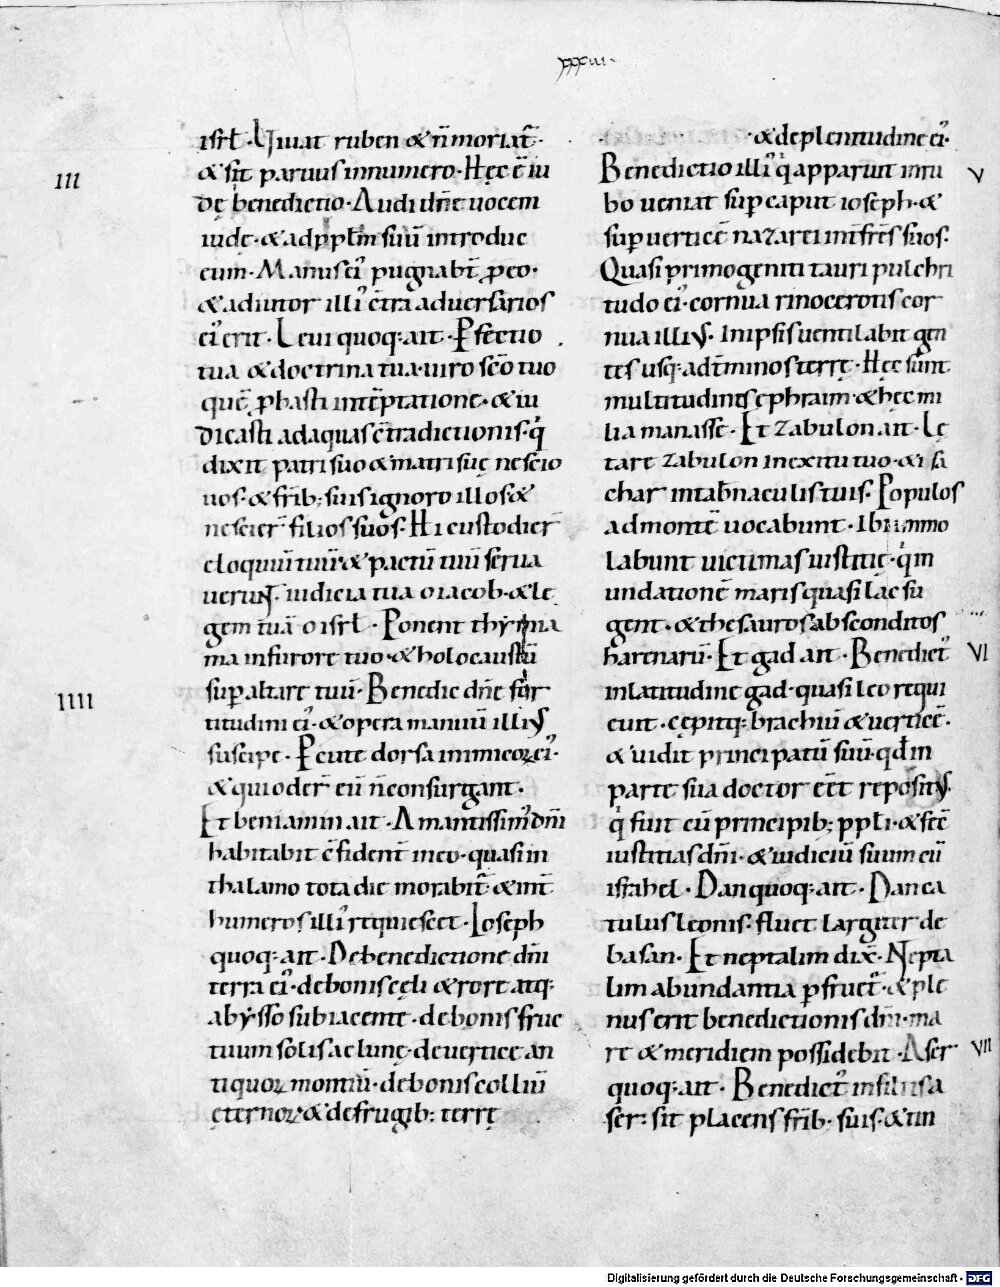 xxxiii
isrƚ. Viuat ruben & n̄ moriat᷑.
III
& sit paruus innumero. Hęc ē iu
dę benedictio. Audi dn̄e uocem
iudę. & adppƚm suū introduc
eum. Manus ei᷒ pugnabt̄ ꝓeo.
& adiutor illi᷒ c̄tra adversarios
ei᷒ erit. Leui quoq: ait. Pfectio
tua & doctrina tua. uiro sc̄o tuo
quē ꝓbasti intēptatione. & iu
dicasti adaquas c̄tradictionis. q̇
dixit patri suo & matri suę nescio
uos. & frīb; suis ignoro illos. &
nescier̄ filios suos. Hi custodier̄
eloquiū tuū. & pactū tuū serua
uerunt. iudicia tua o iacob. & le
gem tuā o isrƚ. Ponent thymia
ma infurore tuo. & holocaustū
IIII
sup̄ altare tuū. Benedic dn̄e for
titudini ei᷒. & opera manuū illi᷒
suscipe. Pcute dorsa inimicoꝝ ei᷒.
& qui oder̄ eū n̄ consurgant.
Et beniamin ait. Amantissim᷒ dn̄i
habitabit c̄fident̄ in eo. quasi in
thalamo tota die morabit᷑. & int̄
humeros illi᷒ requiescet. Ioseph
quoq: ait. Debenedictione dn̄i
terra ei᷒. debonis cęli & rore atq:
abysso subiacente. debonis fruc
tuum solis ac lunę. deuertice an
tiquoꝝ montiū. debonis colliū
ęternoꝝ & defrugib: terrę
& deplenitudine ei᷒.
V
Benedictio illi᷒ q̇ apparuit inru
bo ueniat sup̄ caput ioseph. &
sup̄ uerticē nazarei int̄ fr̄es suos.
Quasi primogeniti tauri pulchri
tudo ei᷒. cornua rinocerotis cor
nua illi᷒. Inipsis uentilabit gen
tes usq: adt̄minos terrę. Hęc sunt
multitudines ephraim. & hęc mi
lia manasse. Et zabulon ait. Lę
tare zabulon inexitu tuo. & isa
char intab̄naculis tuis. Populos
admontē uocabunt. Ibi immo
labunt uictimas iustitię. q̇ in
undationē maris quasi lac su
gent. & thesauros absconditos
VI
harenarū. Et gad ait. Benedict᷒
inlatitudine gad. quasi leo requi
euit. cępitq: brachiū & uerticē.
& uidit principatū suū. qd̄ in
parte sua doctor eēt reposit᷒.
q̇ fuit cū principib; ppƚi. & fec̄
iustitias dn̄i. & iudiciū suum cū
israhel. Dan quoq: ait. Dan ca
tulus leonis. fluet largiter de
basan. Et neptalim dix̄. Nepta
lim abundantia ꝑfruet᷑. & ple
nus erit benedictionis dn̄i. ma
VII
re & meridiem possidebit. Aser
quoq: ait. Benedict᷒ infiliis a
ser. sit placens frīb. suis. & tin
Digitalisierung gefördert durch die Deutsche Forschungsgemeinschaft - DFG